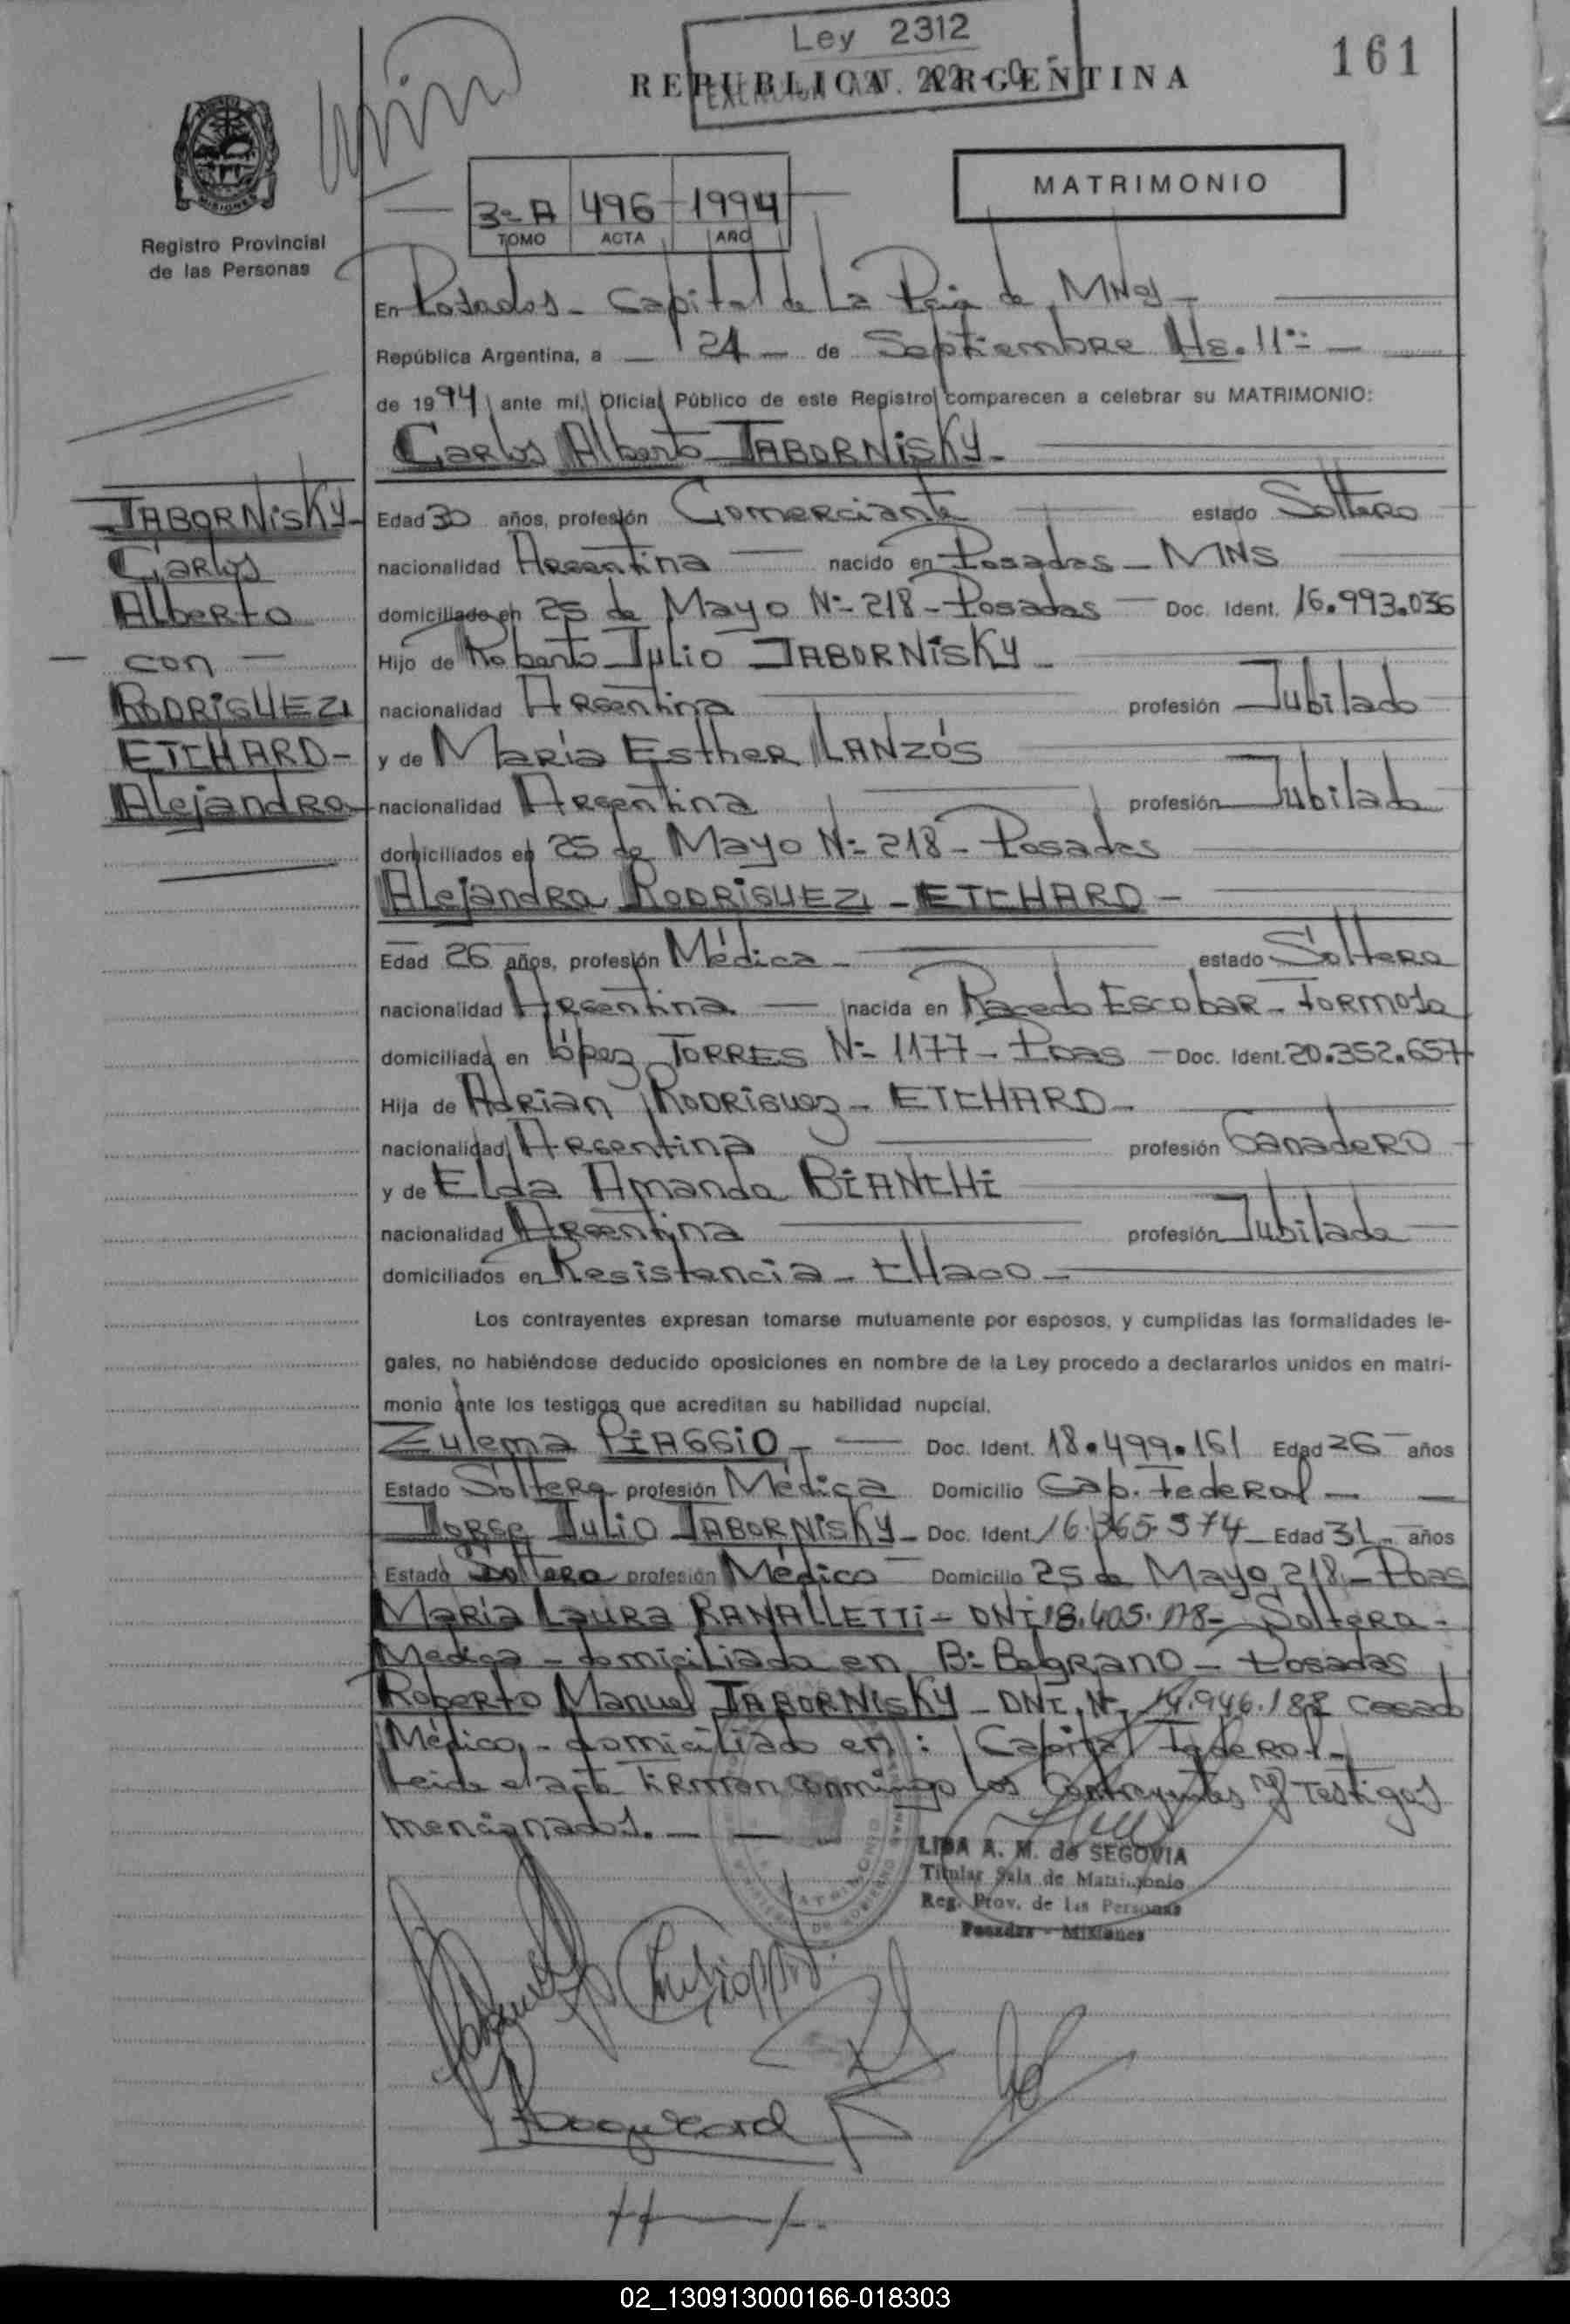 Ley 2312
161
REPUBLICA ARGENTINA
MATRIMONIO
3º A 496 1994
TOMO ACTA AÑO
MISIONES
Registro Provincial
de las Personas
En Posadas - Capital de La Pcia de MNes -
República Argentina, a - 24 - de Septiembre Hs. 11
de 1994 ante mí, Oficial Público de este Registro comparecen a celebrar su MATRIMONIO:
Carlos Alberto JABORNISKY -
JABORNISKY -
Carlos
Alberto
- con -
RODRIGUEZ
ETCHARD -
Alejandra
Edad 30 años, profesión Comerciante estado Soltero
nacionalidad Argentina nacido en Posadas - MNS
domiciliado en 25 de Mayo Nº 218 - Posadas - Doc. Ident. 16.993.036
Hijo de Roberto Julio JABORNISKY -
nacionalidad Argentina profesión Jubilado
y de María Esther LANZÓS
nacionalidad Argentina profesión Jubilada
domiciliados en 25 de Mayo Nº 218 - Posadas
Alejandra RODRIGUEZ - ETCHARD -
Edad 26 años, profesión Médica - estado Soltera
nacionalidad Argentina - nacida en Racedo Escobar - Formosa
domiciliada en López TORRES Nº 1177 - Pdas - Doc. Ident. 20.352.657
Hija de Adrian RODRIGUEZ - ETCHARD -
nacionalidad Argentina profesión Ganadero
y de Elda Amanda BIANCHI
nacionalidad Argentina profesión Jubilada
domiciliados en Resistencia - Chaco -
Los contrayentes expresan tomarse mutuamente por esposos, y cumplidas las formalidades le-
gales, no habiéndose deducido oposiciones en nombre de la Ley procedo a declararlos unidos en matri-
monio ante los testigos que acreditan su habilidad nupcial.
Zulema PIAGGIO - Doc. Ident. 18.499.161 Edad 26 años
Estado Soltera profesión Médica Domicilio Cap. Federal -
Jorge Julio JABORNISKY - Doc. Ident. 16.365.974 Edad 31 - años
Estado Soltero profesión Médico Domicilio 25 de Mayo 218 - Pdas
María Laura RANALLETTI - DNI 18.405.178 - Soltera -
Medica - domiciliada en Bº Belgrano - Posadas
Roberto Manuel JABORNISKY - DNI Nº 14.946.188 Casado
Médico - domiciliado en: Capital Federal -
Leida el acta Firman conmingo los Contrayentes y Testigos
mencionados. -
LIDA A. M. de SEGOVIA
Titular Sala de Matrimonio
Reg. Prov. de las Personas
Posadas - Misiones
02_130913000166-018303